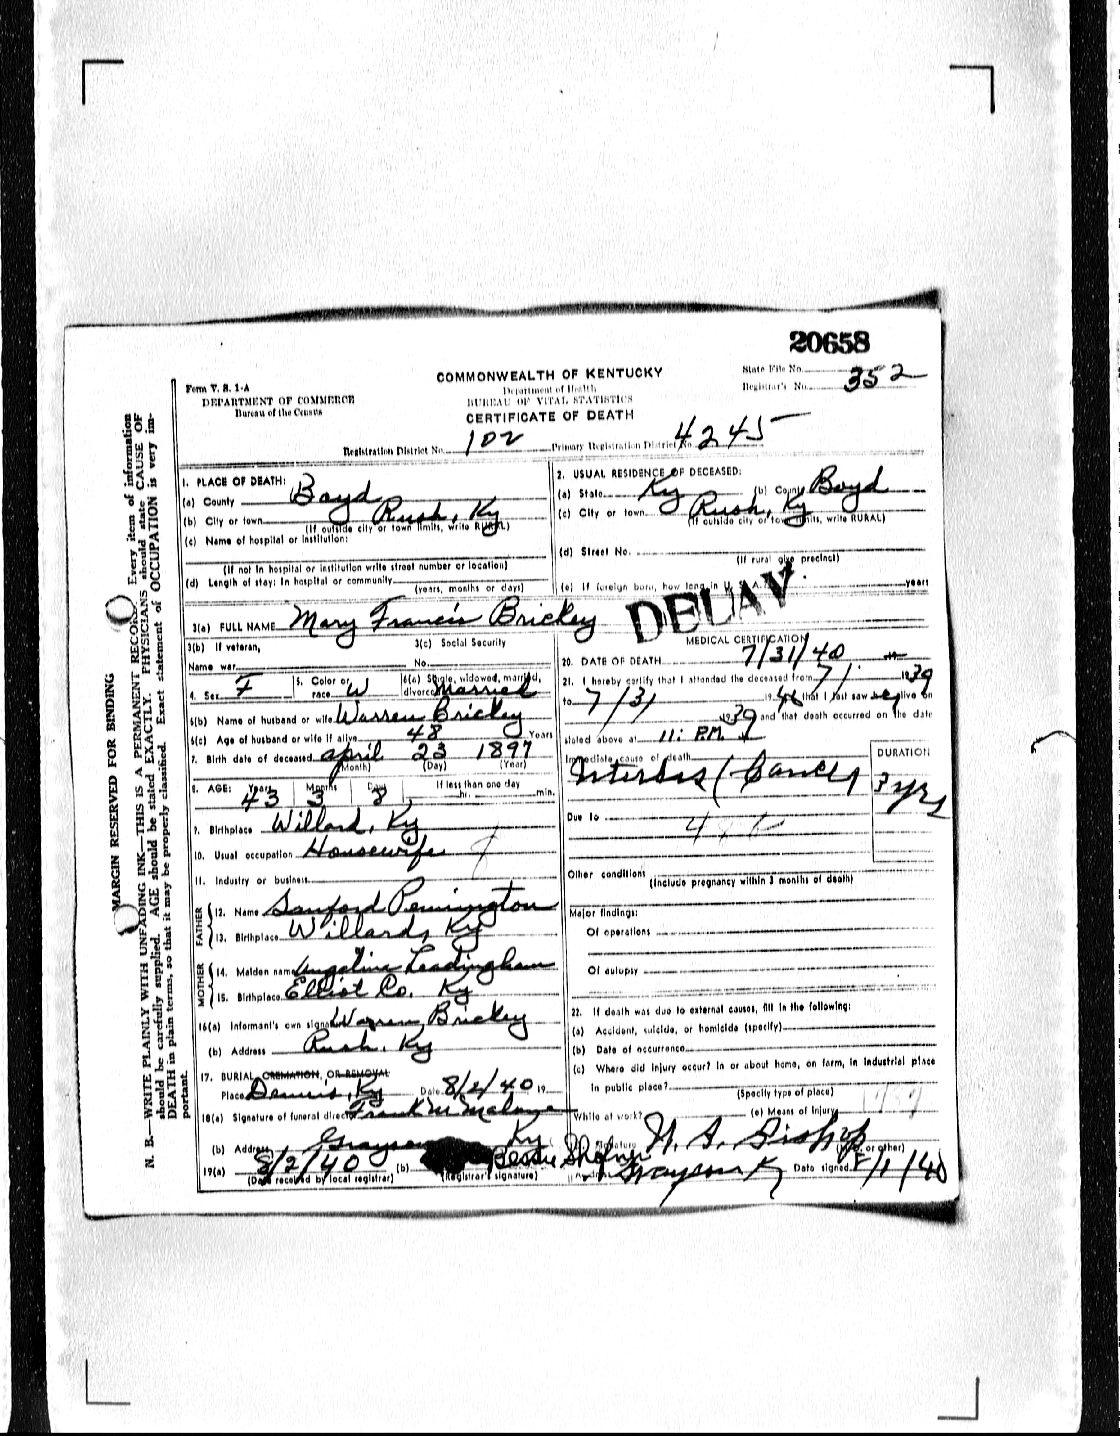 20658
State File No.
Registrar's No. 352
Form V. S. 1-A
DEPARTMENT OF COMMERCE
Bureau of the Census
COMMONWEALTH OF KENTUCKY
Department of Health
BUREAU OF VITAL STATISTICS
CERTIFICATE OF DEATH
Registration District No. 102 Primary Registration District No. 4245
MARGIN RESERVED FOR BINDING
N. B.—WRITE PLAINLY WITH UNFADING INK—THIS IS A PERMANENT RECORD. Every item of information
should be carefully supplied. AGE should be stated EXACTLY. PHYSICIANS should state CAUSE OF
DEATH in plain terms, so that it may be properly classified. Exact statement of OCCUPATION is very im-
portant.
1. PLACE OF DEATH:
(a) County Boyd
(b) City or town Rush, Ky
(If outside city or town limits, write RURAL)
(c) Name of hospital or institution:
(If not in hospital or institution write street number or location)
(d) Length of stay: In hospital or community
(years, months or days)
2. USUAL RESIDENCE OF DECEASED:
(a) State Ky (b) County Boyd
(c) City or town Rush, Ky
(If outside city or town limits, write RURAL)
(d) Street No.
(If rural give precinct)
(e) If foreign born, how long in U. S. A.? years
DELAY
3(a) FULL NAME Mary Francis Brickey
3(b) If veteran, 3(c) Social Security
Name war No.
4. Sex F 5. Color or race W 6(a) Single, widowed, married, divorced Married
6(b) Name of husband or wife Warren Brickey
6(c) Age of husband or wife if alive 48 Years
7. Birth date of deceased April 23 1897
(Month) (Day) (Year)
8. AGE: Years 43 Months 3 Days 8 If less than one day hr. min.
9. Birthplace Willard, Ky
10. Usual occupation Housewife
11. Industry or business
FATHER
12. Name Sanford Pennington
13. Birthplace Willards Ky
MOTHER
14. Maiden name Angeline Leadingham
15. Birthplace Elliot Co. Ky
16(a) Informant's own signature Warren Brickey
(b) Address Rush, Ky
17. BURIAL, CREMATION, OR REMOVAL
Place Dennis, Ky Date 8/2/40 19
18(a) Signature of funeral director Frank M Malone
(b) Address Grayson Ky
19(a) 8/2/40 (b) Bessie
(Date received by local registrar) (Registrar's signature)
MEDICAL CERTIFICATION
20. DATE OF DEATH 7/31/40
21. I hereby certify that I attended the deceased from 7/1 1939
to 7/31 1940 that I last saw her alive on
1939 and that death occurred on the date
stated above at 11: P.M.
Immediate cause of death
Cancer
DURATION
3 yrs
Due to
Other conditions
(Include pregnancy within 3 months of death)
Major findings:
Of operations
Of autopsy
22. If death was due to external causes, fill in the following:
(a) Accident, suicide, or homicide (specify)
(b) Date of occurrence
(c) Where did injury occur? In or about home, on farm, in industrial place
in public place?
(Specify type of place)
While at work? (e) Means of Injury
Signature H. S. Bishop
(M.D. or other)
Address Grayson Ky Date signed 8/1/40